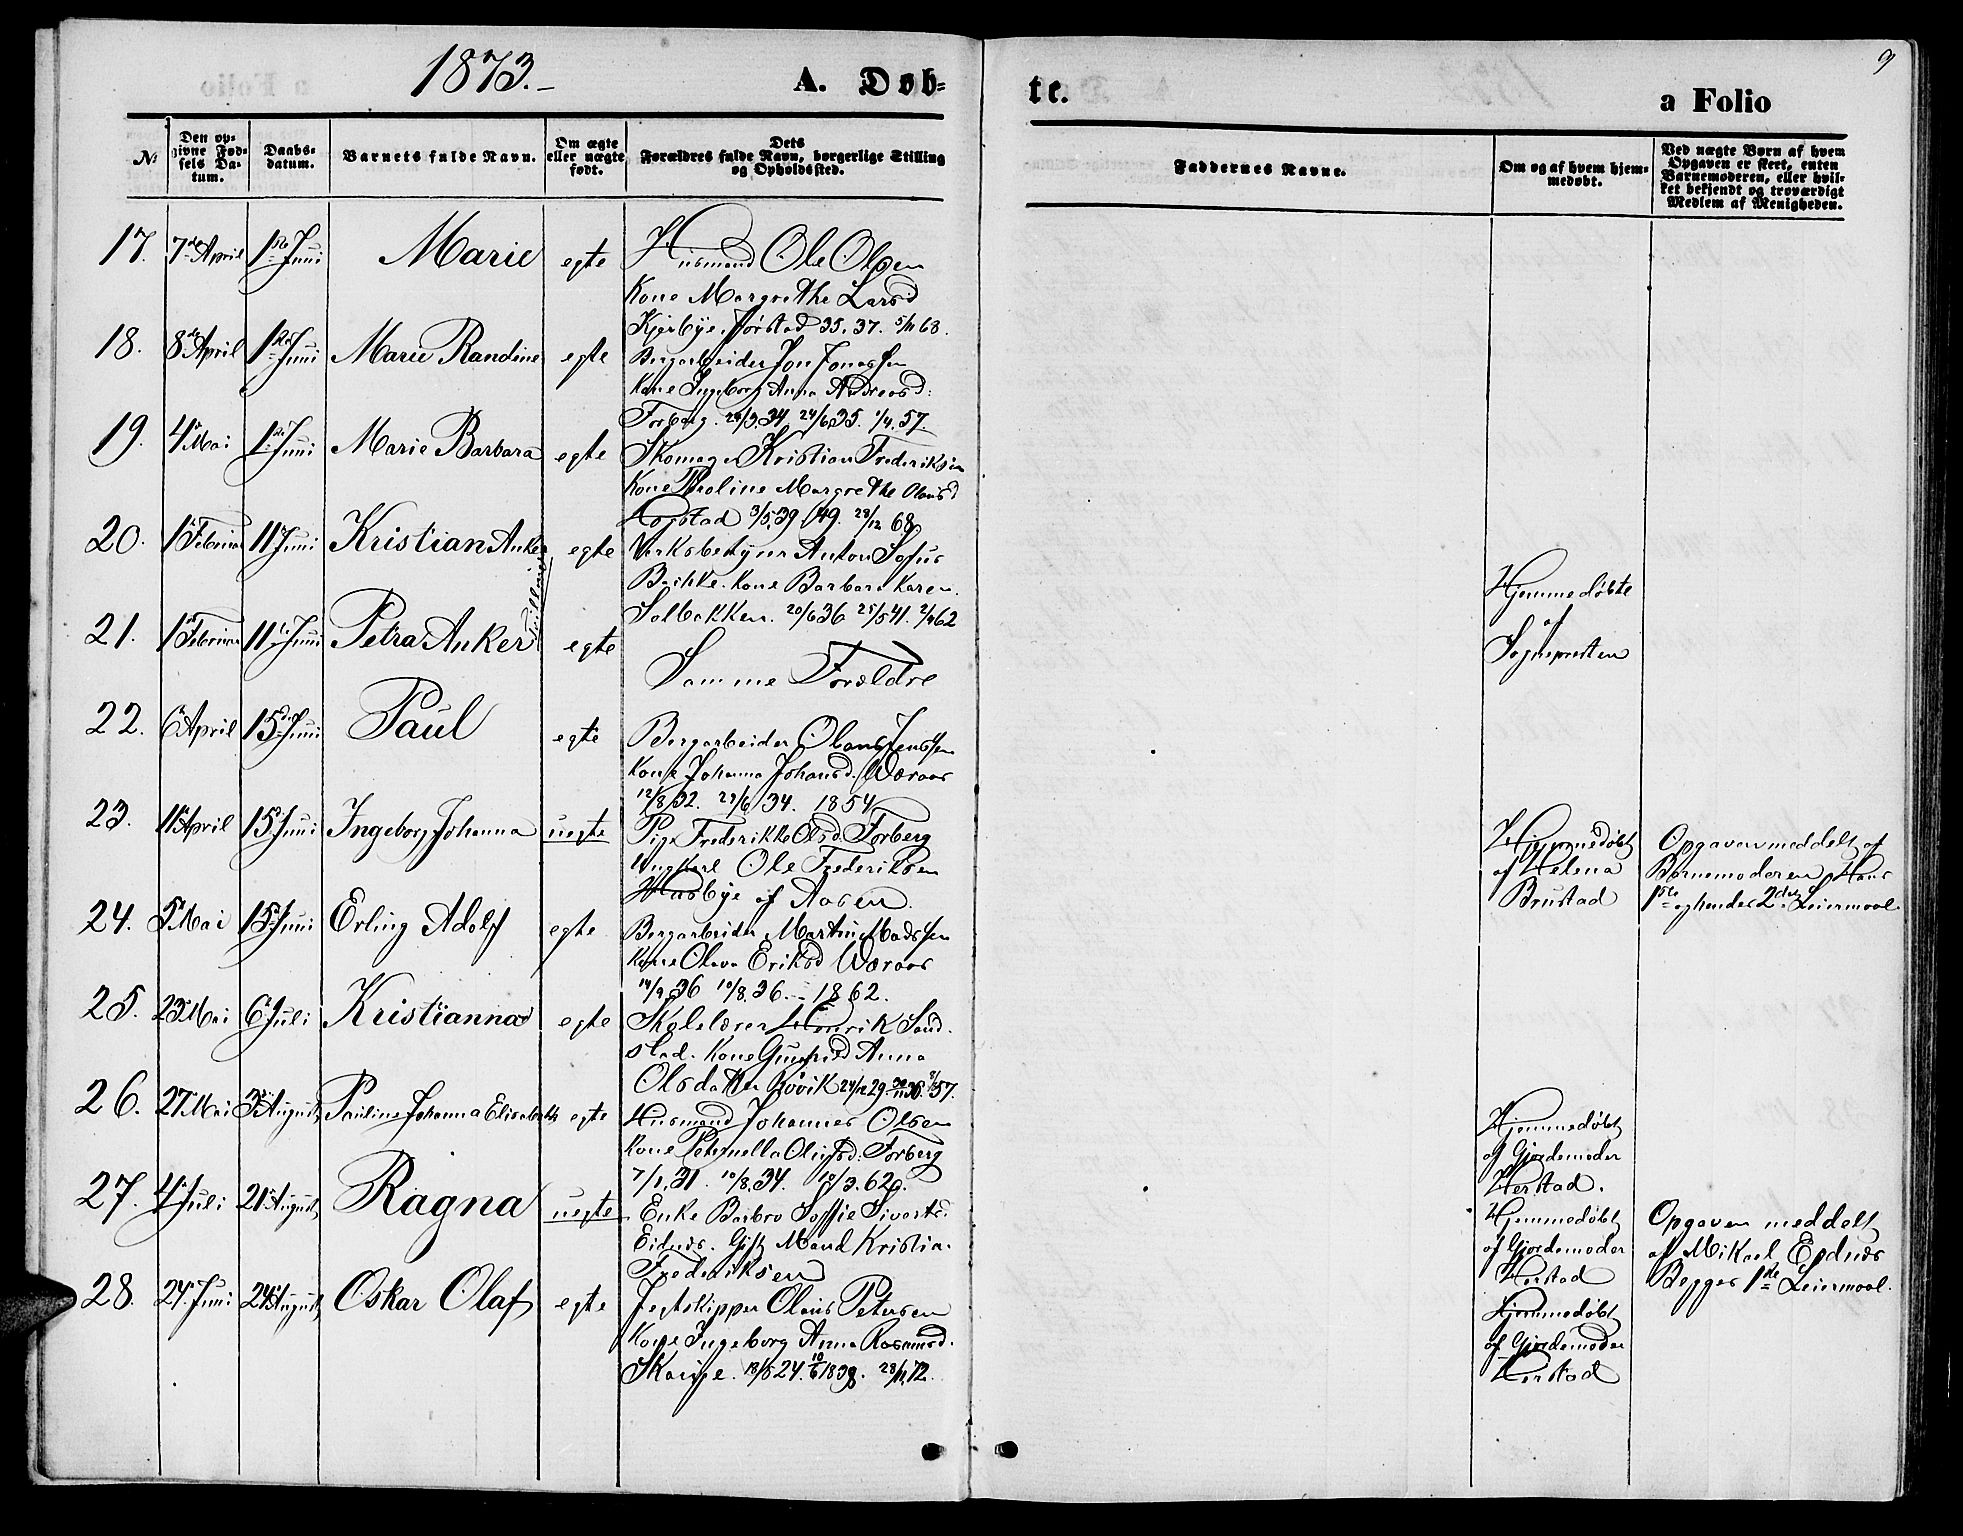 1873.
A. Døb-
te.
a Folio
9
№
Den op-
givne Fød-
sels Da-
tum.
Daabs-
datum.
Barnets fulde Navn.
Om ægte
eller uægte
født.
Dets
Forældres fulde Navn, borgerlige Stilling
og Opholdssted.
Faddernes Navne.
Om og af hvem hjem-
medøbt.
Ved uægte Børn af hvem
Opgaven er skeet, enten
Barnemoderen, eller hvil-
ket bekjendt og troværdigt
Medlem af Menigheden.
17. 7de April 1ste Juni Marie egte Husmand Ole Olsen
Kone Margrethe Larsd
35. 37. 5/11 68.
18. 8de April 1ste Juni Marie Randine egte Bergarbeider Jon Jonassen
Kone Ingeborg Anna Andreasd:
Forberg. 34 24/6 35. 1/4. 57.
19. 4de Mai 1ste Juni Marie Barbara egte Skomager Kristian Frederiksen
Kone Margrethe Olausd
3/5 39 49. 28/12 68
20. 1ste Februar 11 Juni Kristian Anker egte Verksbestyrer Anton Sofus
Bachke. Kone Barbara Karen.
Solbakken. 20/6 36 25/5 41. 2/4 62
21. 1ste Februar 11te Juni Petra Anker egte
Samme Forældre
Hjemmedøbte
af
Sognepresten
22. 6te April 15de Juni Paul egte Bergarbeider Olaus Jenssen
Kone Johanna Johansd. Væraas
12/8 32. 29/6 34. 1854
23. 11te April 15de Juni Ingeborg Johanna uegte Pige Frederikke Olsd. Forberg
Ungkarl Ole Frederiksen
Husbye af Aasen.
Hjemmedøbt
af Helena
Brustad
Opgaven meddelt af
Barnemoderen Hans
1ste og hendes 2det Leiermaal.
24. 5te Mai 15de Juni Erling Adolf egte Bergarbeider Martin Madssen
Kone Olava Eriksd Væraas
14/9. 36 10/8. 36. - 1862.
25. 23de Mai 6te Juli Kristianna egte Skolelærer Henrik Sand-
stad. Kone Anna
Olsdatter 24/12 29. 57.
26. 27de Mai 3de August Pauline Johanna Elisabeth egte Husmand Johannes Olsen
Kone Peternella Forberg
7/1. 31. 10/8. 34. 62.
Hjemmedøbt
af Gjordemoder
Herstad.
27. 4de Juli 21de August Ragna uegte Enke Barbro Soffie Sivertsd.
Eidnes. Gift Mand Kristia-
Frederiksen
Hjemmedøbt
af Gjordemoder
Herstad
Opgaven meddelt
af Mikael Eidnæs
Begges 1ste Leiermaal.
28. 24de Juni 24de August Oskar Olaf egte Jegtskipper Olaus Petersen
Kone Ingeborg Anna
18/5 24. 28/11 72.
Hjemmedøbt
af Gjordemoder
Herstad